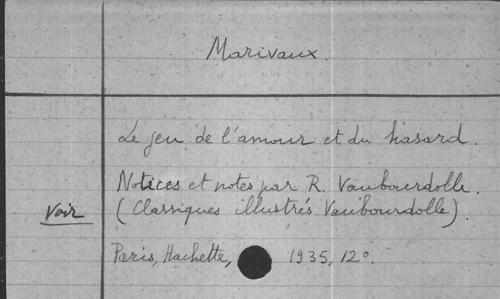 Marivaux.
Le jeu de l'amour et du hasard.
Notices et notes par R. Vaubourdolle.
Voir (Classiques illustrés Vaubourdolle).
Paris, Hachette, 1935, 12°.